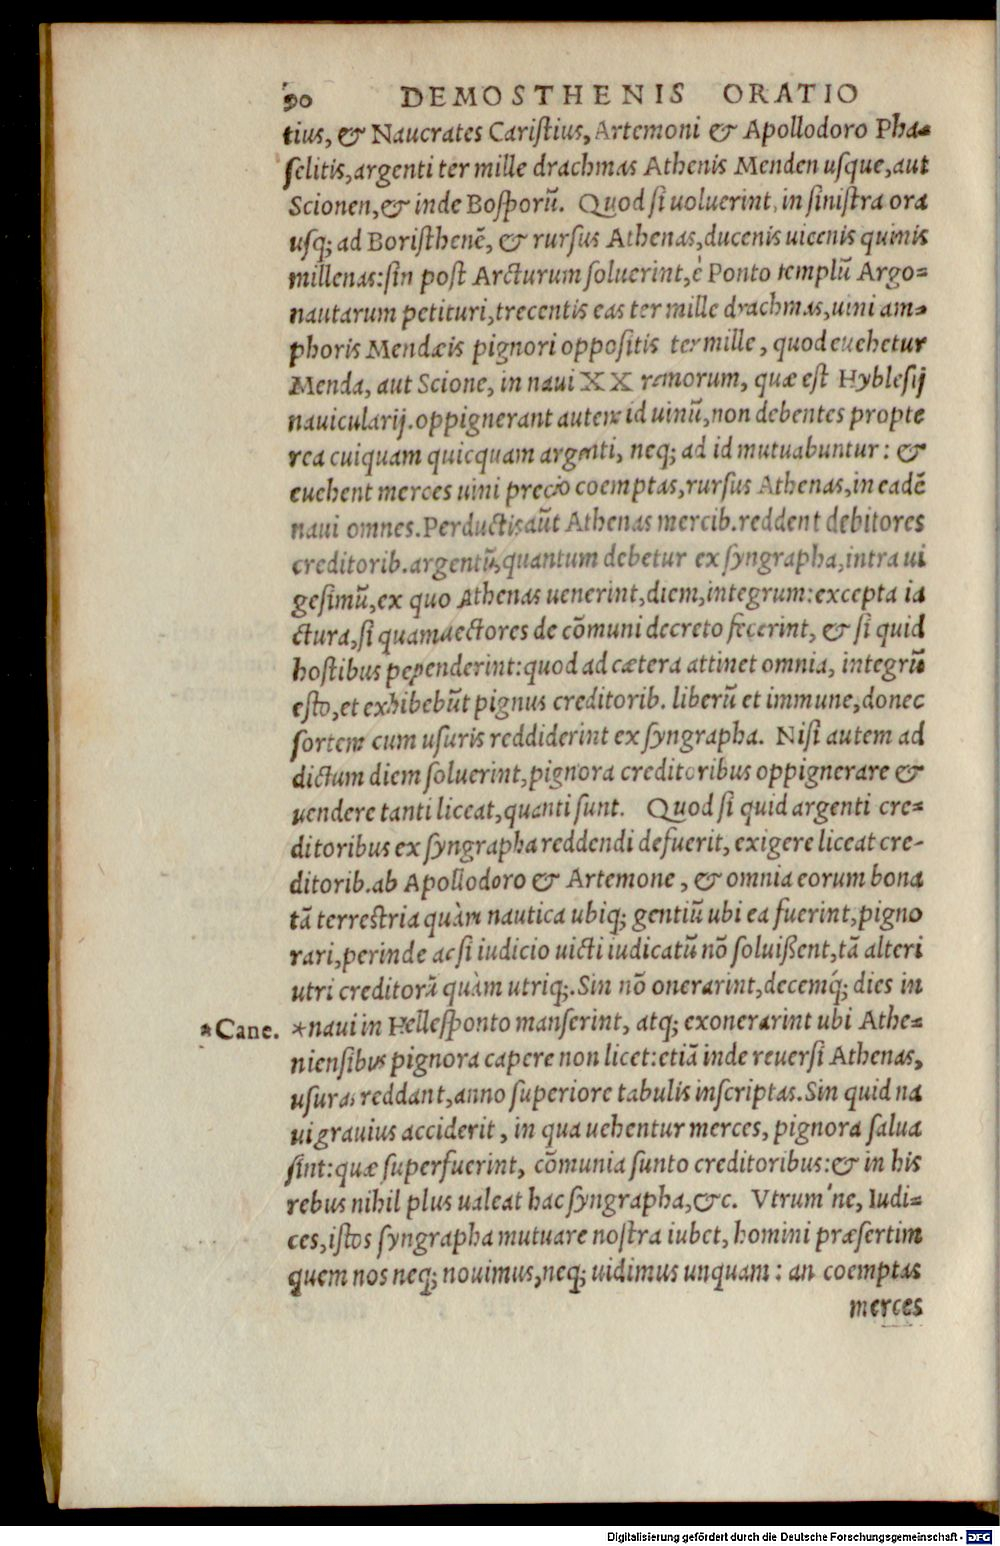 90 DEMOSTHENIS ORATIO
tius, & Naucrates Caristius, Artemoni & Apollodoro Pha-
selitis, argenti ter mille drachmas Athenis Menden usque, aut
Scionen, & inde Bosporũ. Quod si uoluerint, in sinistra ora
usq; ad Boristhenẽ, & rursus Athenas, ducenis uicenis quinis
millenas: sin post Arcturum soluerint, è Ponto templũ Argo-
nautarum petituri, trecentis eas ter mille drachmas, uini am-
phoris Mendæis pignori oppositis ter mille, quod euehetur
Menda, aut Scione, in naui XX remorum, quæ est Hyblesij
nauicularij. oppignerant autem id uinũ, non debentes propte
rea cuiquam quicquam argenti, neq; ad id mutuabuntur: &
euehent merces uini precio coemptas, rursus Athenas, in eadẽ
naui omnes. Perductis aũt Athenas mercib. reddent debitores
creditorib. argentũ, quantum debetur ex syngrapha, intra ui
gesimũ, ex quo Athenas uenerint, diem, integrum: excepta ia
ctura, si quam uectores de cõmuni decreto fecerint, & si quid
hostibus pependerint: quod ad cætera attinet omnia, integrũ
esto, et exhibebũt pignus creditorib. liberũ et immune, donec
sortem cum usuris reddiderint ex syngrapha. Nisi autem ad
dictum diem soluerint, pignora creditoribus oppignerare &
uendere tanti liceat, quanti sunt. Quod si quid argenti cre-
ditoribus ex syngrapha reddendi defuerit, exigere liceat cre-
ditorib. ab Apollodoro & Artemone, & omnia eorum bona
tã terrestria quàm nautica ubiq; gentiũ ubi ea fuerint, pigno
rari, perinde ac si iudicio uicti iudicatũ nõ soluißent, tã alteri
utri creditorũ quàm utriq;. Sin nõ onerarint, decemq́; dies in
*Cane. *naui in Hellesponto manserint, atq; exonerarint ubi Athe-
niensibus pignora capere non licet: etiã inde reuersi Athenas,
usuras reddant, anno superiore tabulis inscriptas. Sin quid na
ui grauius acciderit, in qua uehentur merces, pignora salua
sint: quæ superfuerint, cõmunia sunto creditoribus: & in his
rebus nihil plus ualeat hac syngrapha, &c. Vtrum'ne, Iudi-
ces, istos syngrapha mutuare nostra iubet, homini præsertim
quem nos neq; nouimus, neq; uidimus unquam: an coemptas
merces
Digitalisierung gefördert durch die Deutsche Forschungsgemeinschaft - DFG